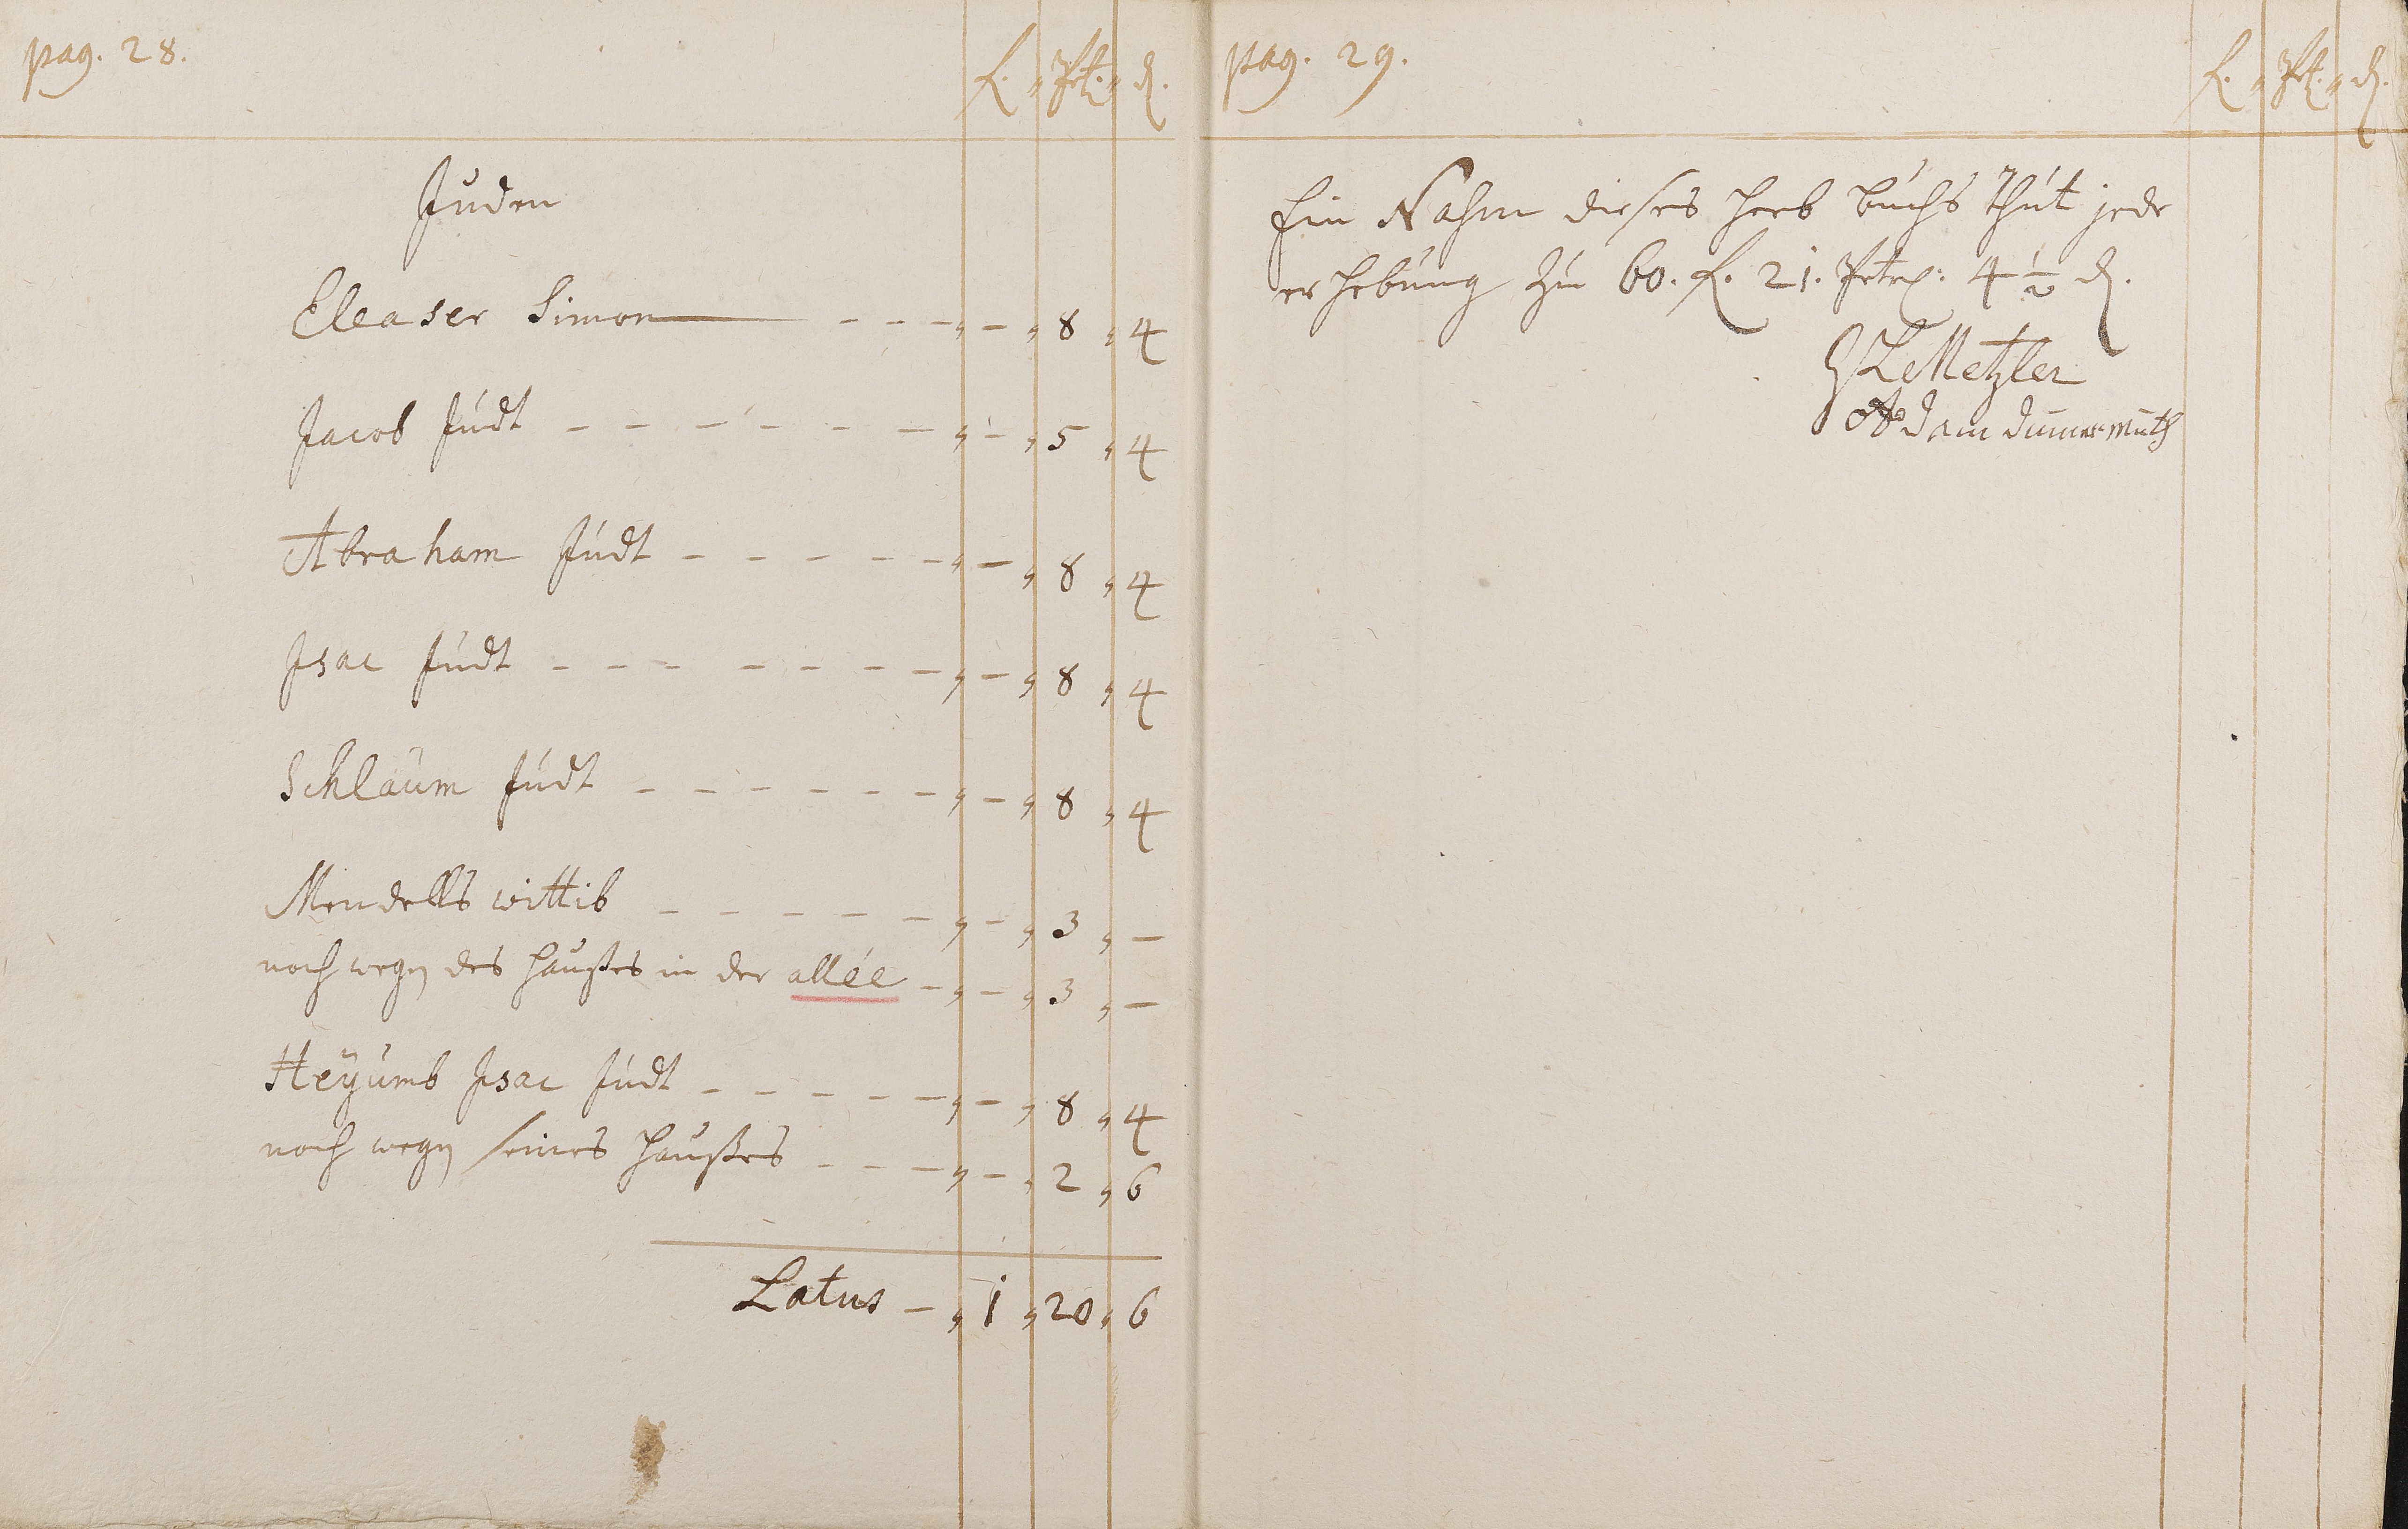 pag. 28.
f. „ Ptr. „ d.
Juden
Eleaser Simon — - - - „ - „ 8 „ 4
Jacob Júdt - - - - - - - „ - „ 5 „ 4
Abraham Júdt - - - - - „ - „ 8 „ 4
Isac Júdt - - - - - - - „ - „ 8 „ 4
Schlaŭm Júdt - - - - - - „ - „ 8 „ 4
Mendells wittib - - - - - „ - „ 3 „ -
noch wegen des haußes in der allée - „ - „ 3 „ -
Heÿŭmb Isac Júdt - - - - - „ - „ 8 „ 4
noch wegen seines haußes - - - „ - „ 2 „ 6
Latus - „ 1 „ 20 „ 6
pag. 29.
f. „ Ptr. „ d.
Ein Nahm dieses heb búchs thút jede
erhebúng zú 60. f. 21. Petr: 4 1/2 d.
Metzler
Adam dúmermúth